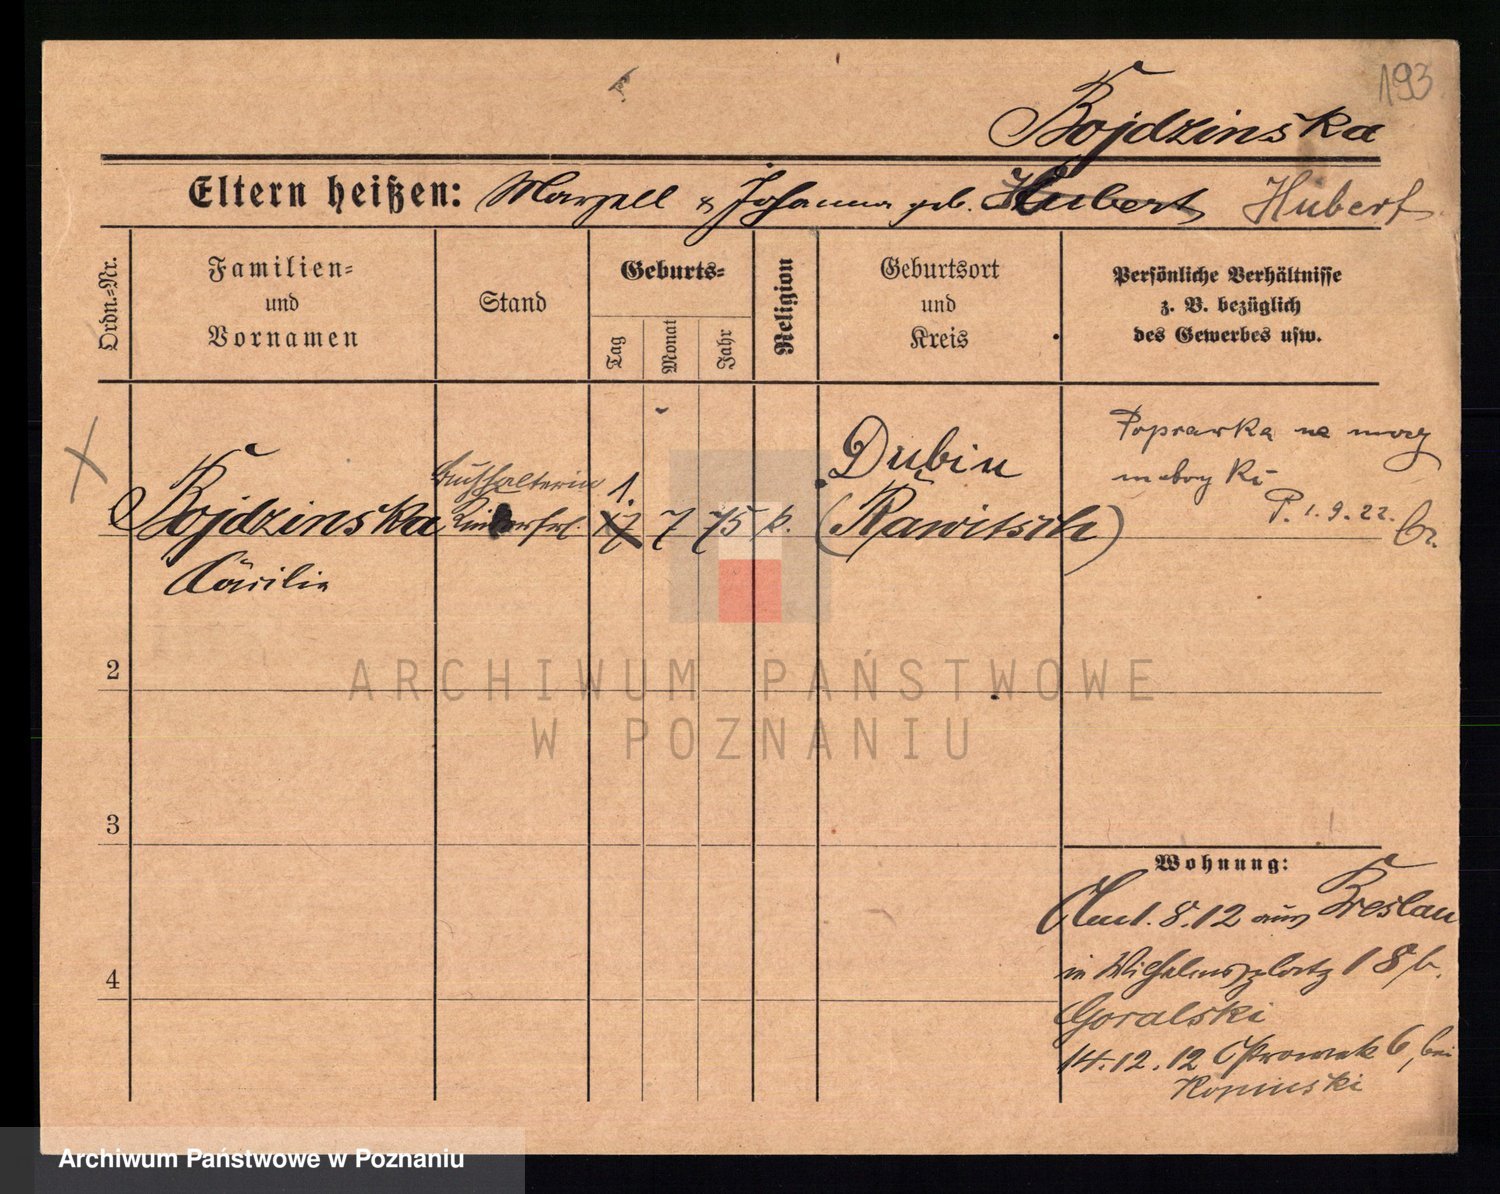 193
Bojdzinska
Eltern heißen: Marzell & Johanna geb. Hubert Hubert
Ordn.-Nr.
Familien-
und
Vornamen
Stand
Geburts-
Tag
Monat
Jahr
Religion
Geburtsort
und
Kreis
Persönliche Verhältnisse
z. B. bezüglich
des Gewerbes usw.
Bojdzinska
Cäcilia
Buchhalterin
Kinderfrl.
1.
17 7 75 k.
Dubin
(Rawitsch)
Poprawka na mocy
metryki
P. 1.9.22.
2
3
4
Wohnung:
8.12 aus Breslau
in Wilhelmsplatz 18 b.
Goralski
14.12.12 Ostrowek 6, bei
Kopinski
ARCHIWUM PAŃSTWOWE
W POZNANIU
Archiwum Państwowe w Poznaniu